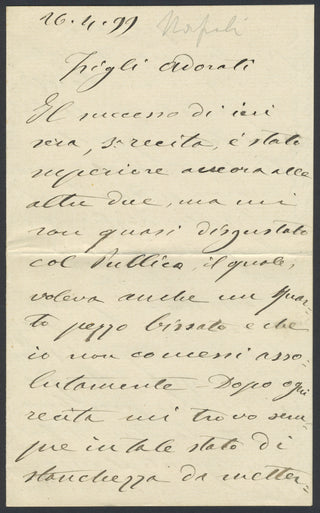 26.4.99 Napoli
Figli Adorati
Il successo di ieri
sera, 3a recita, é stato
superiore ancora alle
altre due, ma mi
son quasi disgustato
col Pubblico, il quale,
voleva anche un quar-
to pezzo bissato e che
io non concessi asso-
lutamente - Dopo ogni
recita mi trovo sem-
pre in tale stato di
stanchezza da metter-